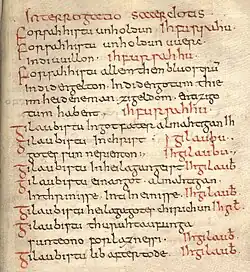 Interrogatio sacerdotis
Forsahhistu unholdun. Ih fursahu.
Forsahhistu unholdun uuerc
indi uuillon. Ih fursahhu.
Forsahhistu allem them bluostrum
indi den gelton. indi den gotum thie
im heidene man zi geldom enti zi go
tum habent. Ih fursahhu.
Gilaubistu in got fater almahtigan. Ih
Gilaubistu in christ gilaubu.
gotes sun nerienton. Ih gilaubu.
Gilaubistu in heilagan geist. Ih gilaub
Gilaubistu einan got almahtigan
in thrinisse. inti in einisse. Ih gilaub
Gilaubistu heilaga gotes chirichun. Ih gil
Gilaubistu thuruh taufunga
sunteono forlaznessi. Ih gilaub
Gilaubistu lib after tode. Ih gilaub